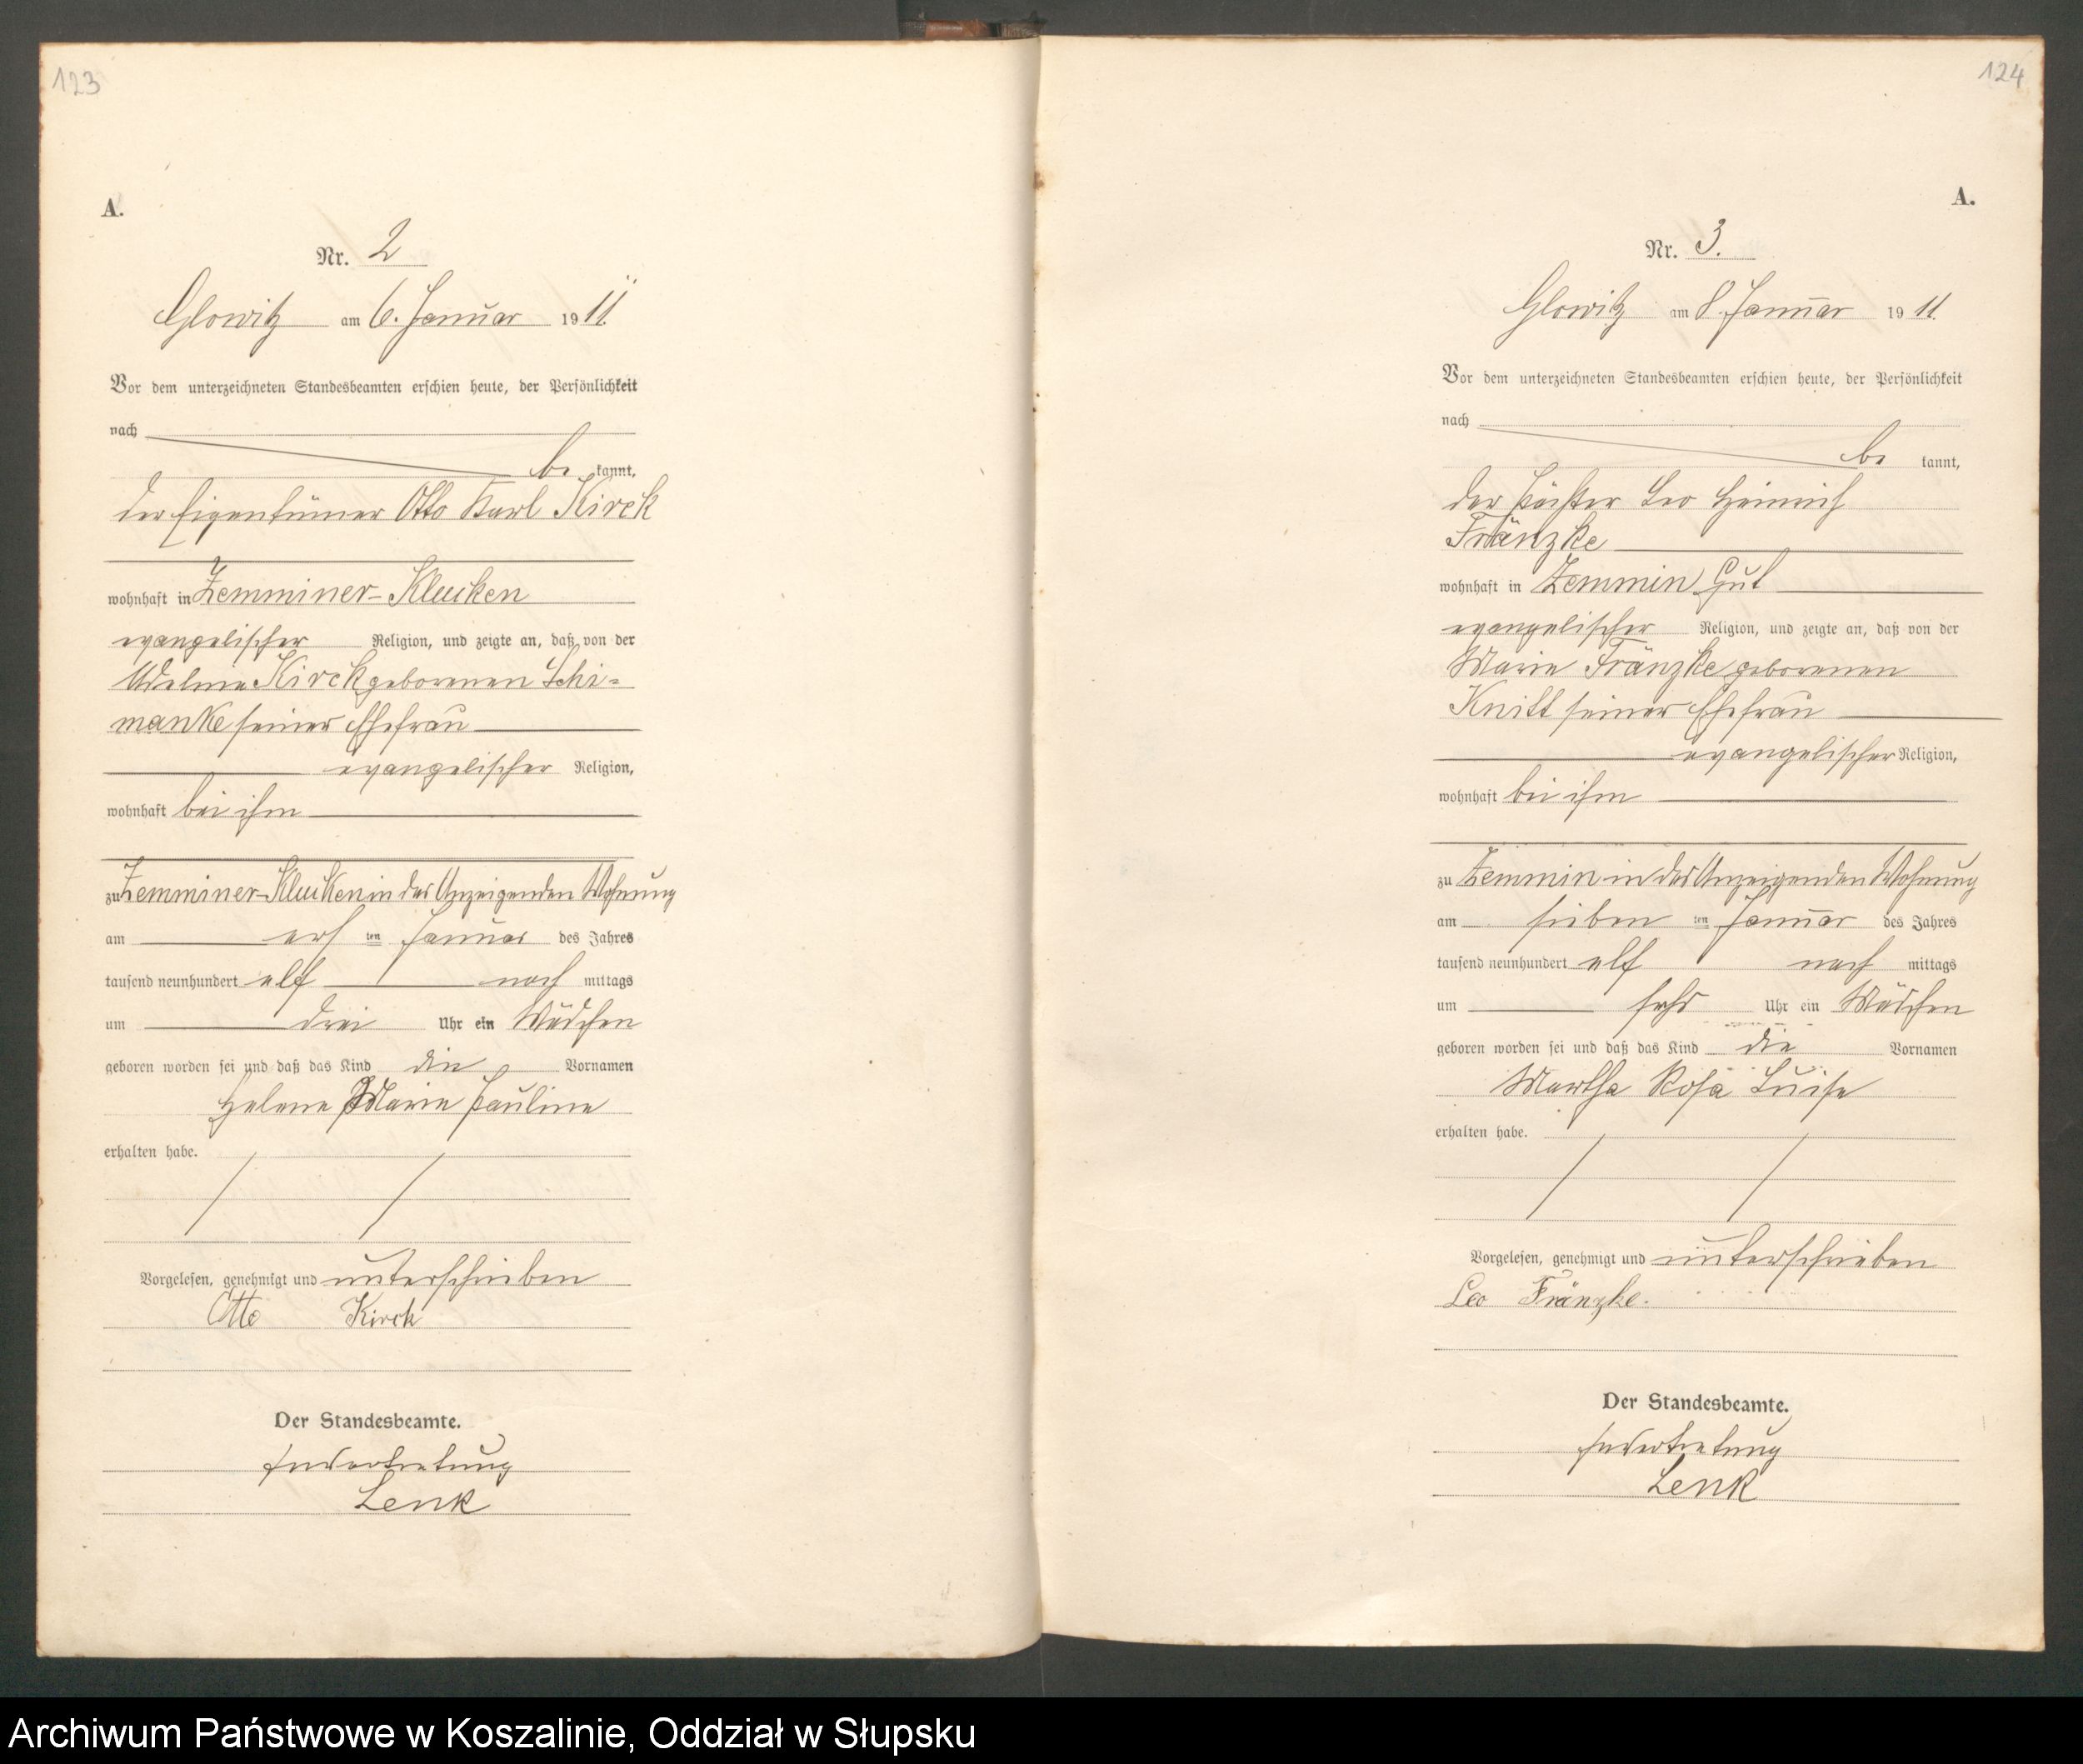 123
A.
Nr. 2
Glowitz am 6. Januar 1911.
Vor dem unterzeichneten Standesbeamten erschien heute, der Persönlichkeit
nach
be kannt,
der Eigentümer Otto Karl Kirck
wohnhaft in Zemminer-Klucken
evangelischer Religion, und zeigte an, daß von der
Kirck geborenen Schi-
manke seiner Ehefrau
evangelischer Religion,
wohnhaft bei ihm
zu Zemminer-Klucken in des Anzeigenden Wohnung
am ersten Januar des Jahres
tausend neunhundert elf nach mittags
um drei Uhr ein Mädchen
geboren worden sei und daß das Kind die Vornamen
Helene Marie Pauline
erhalten habe.
Vorgelesen, genehmigt und unterschrieben
Otto Kirck
Der Standesbeamte.
In Vertretung
Lenk
124
A.
Nr. 3.
Glowitz am 8. Januar 1911.
Vor dem unterzeichneten Standesbeamten erschien heute, der Persönlichkeit
nach
be kannt,
der Pächter Leo Heinrich
Fränzke
wohnhaft in Zemmin Gut
evangelischer Religion, und zeigte an, daß von der
Marie Fränzke geborenen
Knitt seiner Ehefrau
evangelischer Religion,
wohnhaft bei ihm
zu Zemmin in des Anzeigenden Wohnung
am siebenten Januar des Jahres
tausend neunhundert elf nach mittags
um sechs Uhr ein Mädchen
geboren worden sei und daß das Kind die Vornamen
Martha Rosa Luise
erhalten habe.
Vorgelesen, genehmigt und unterschrieben
Leo Fränzke.
Der Standesbeamte.
In Vertretung
Lenk
Archiwum Państwowe w Koszalinie, Oddział w Słupsku